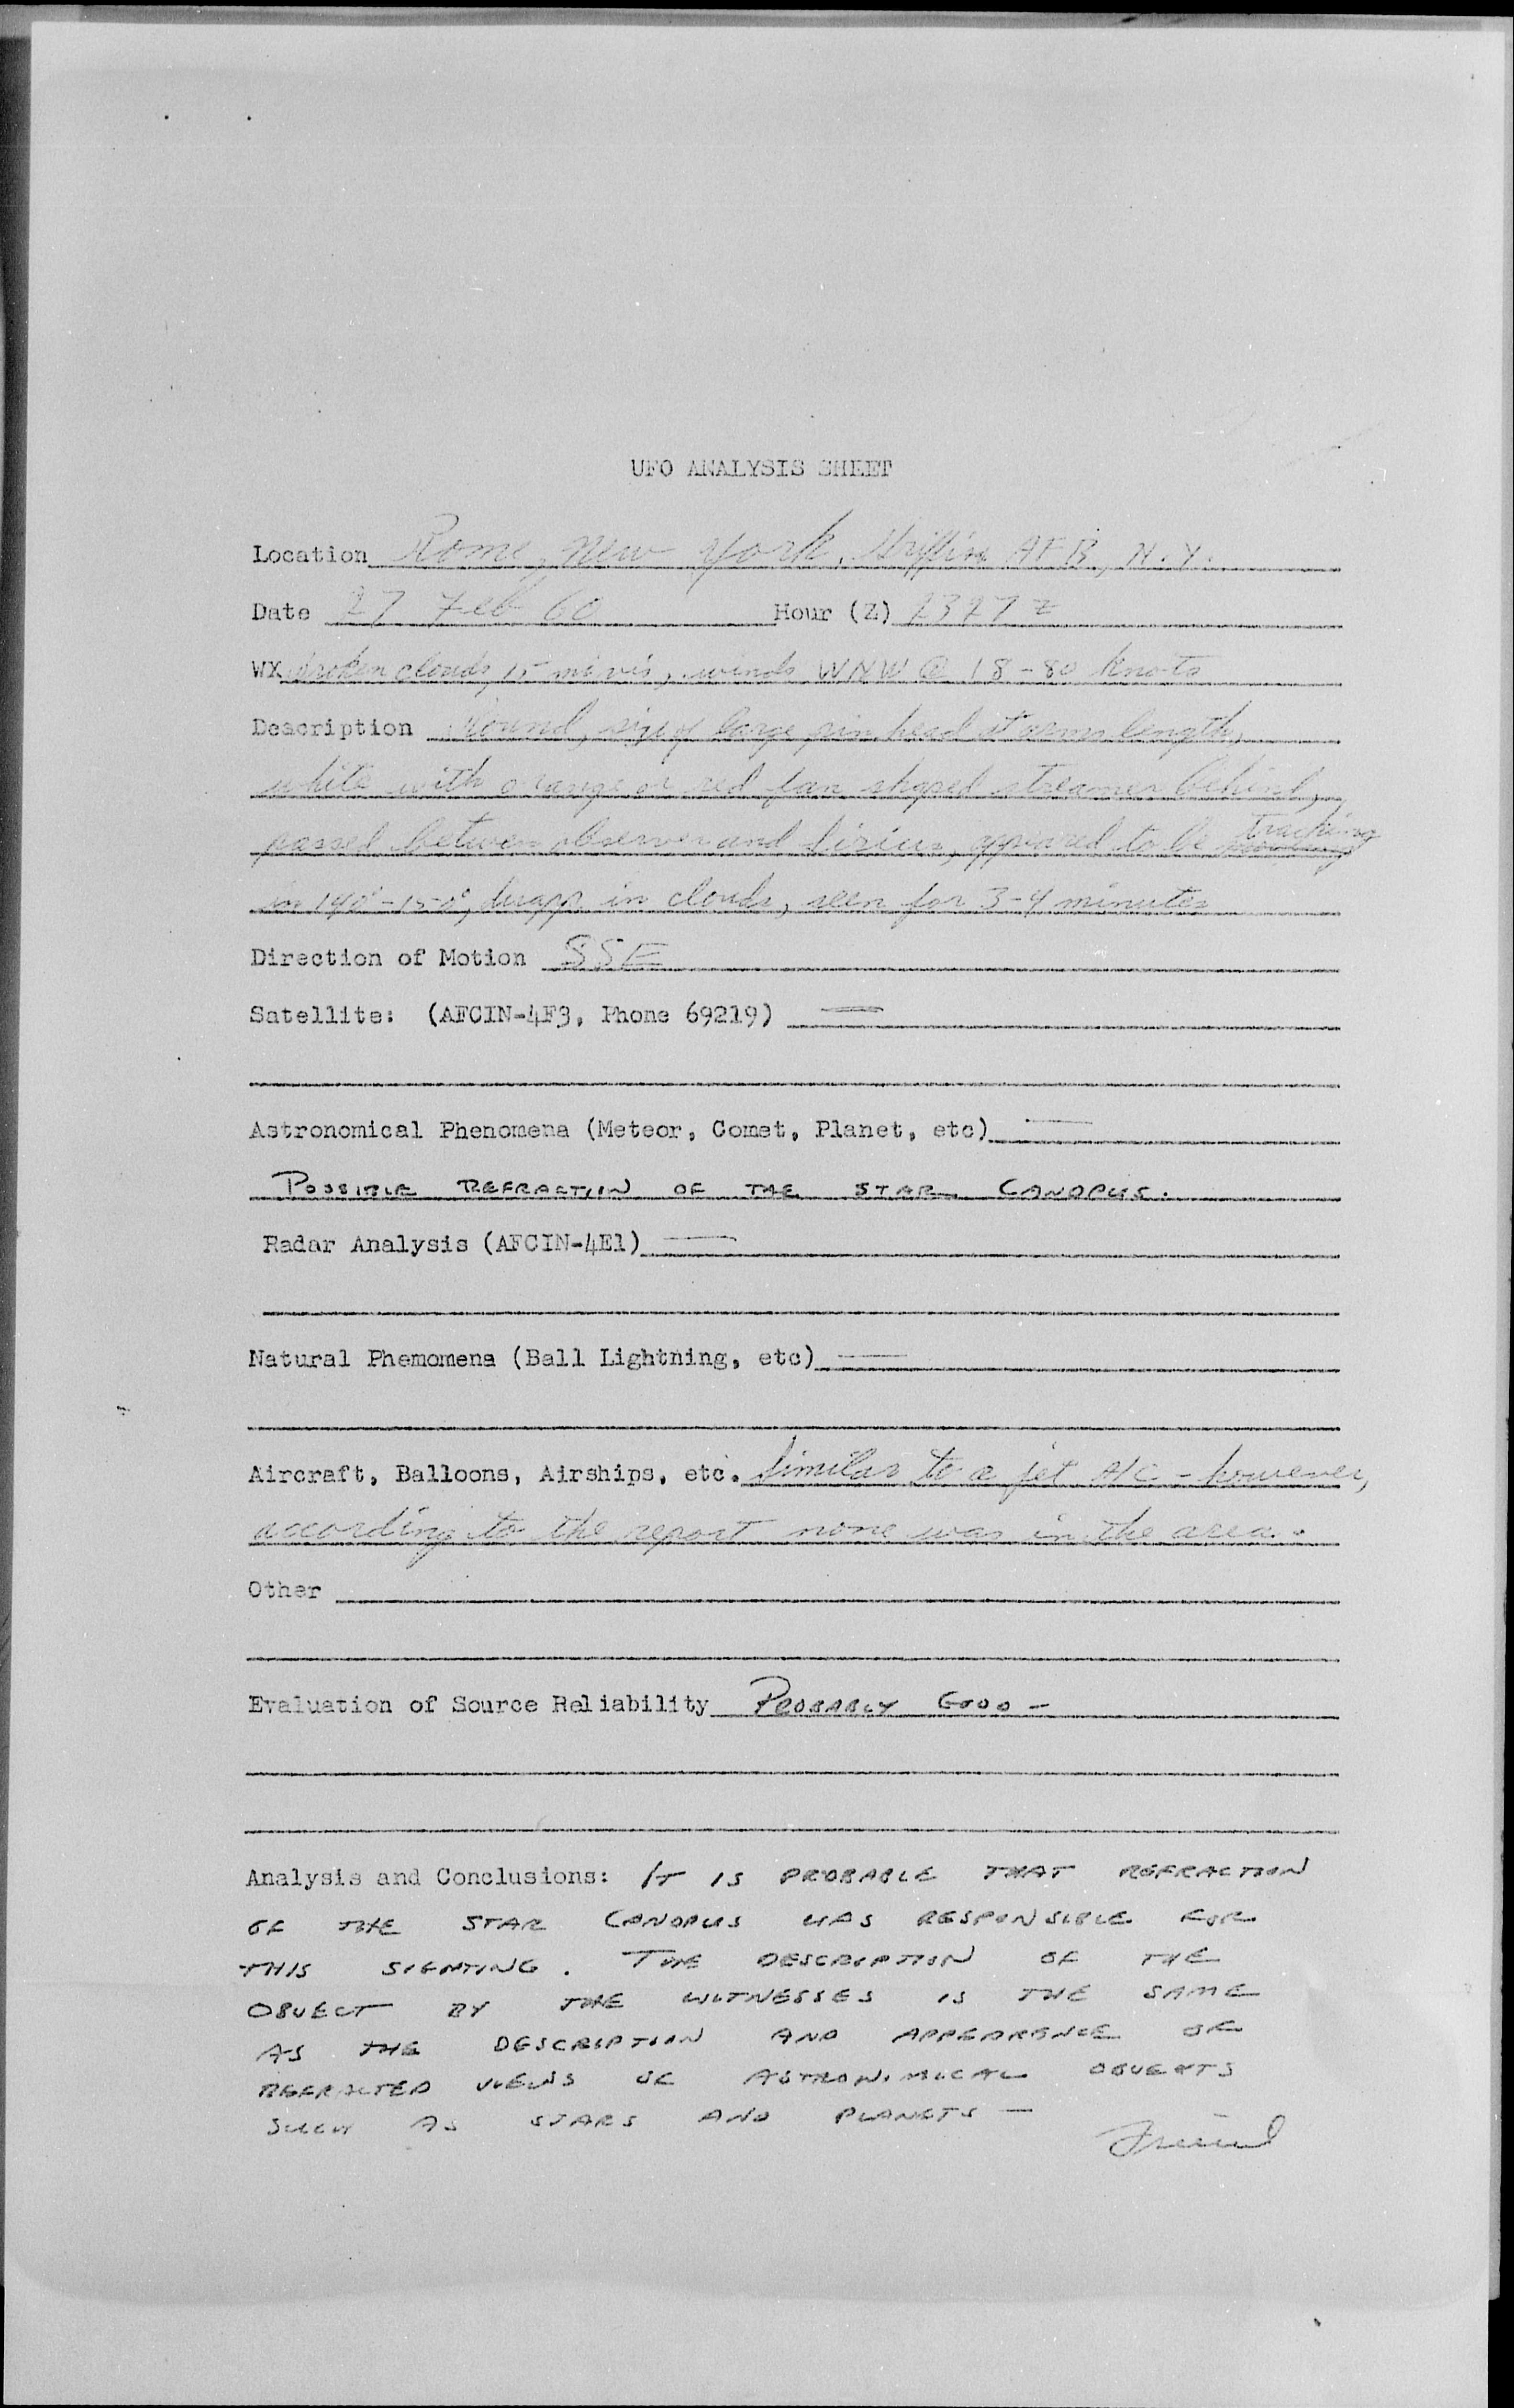 UFO ANALYSIS SHEET
Location Rome, New York, Griffiss AFB, N.Y.
Date 27 Feb 60 Hour (Z) 2327 Z
WX broken clouds, 15 mi vis, winds WNW @ 18-80 knots
Description Round, size of large pin head at arms length,
white with orange or red fan shaped streamer behind,
passed between observer and Sirius, appeared to be tracking
on 140°-150°, disapp in clouds, seen for 3-4 minutes
Direction of Motion SSE
Satellite: (AFCIN-4F3, Phone 69219) —
Astronomical Phenomena (Meteor, Comet, Planet, etc) —
POSSIBLE REFRACTION OF THE STAR CANOPUS.
Radar Analysis (AFCIN-4E1) —
Natural Phemomena (Ball Lightning, etc) —
Aircraft, Balloons, Airships, etc. Similar to a jet A/C - however,
according to the report none was in the area.
Other
Evaluation of Source Reliability PROBABLY GOOD -
Analysis and Conclusions: IT IS PROBABLE THAT REFRACTION
OF THE STAR CANOPUS WAS RESPONSIBLE FOR
THIS SIGHTING. THE DESCRIPTION OF THE
OBJECT BY THE WITNESSES IS THE SAME
AS THE DESCRIPTION AND APPEARENCE OF
REFRACTED VIEWS OF ASTRONOMICAL OBJECTS
SUCH AS STARS AND PLANETS —
Friend